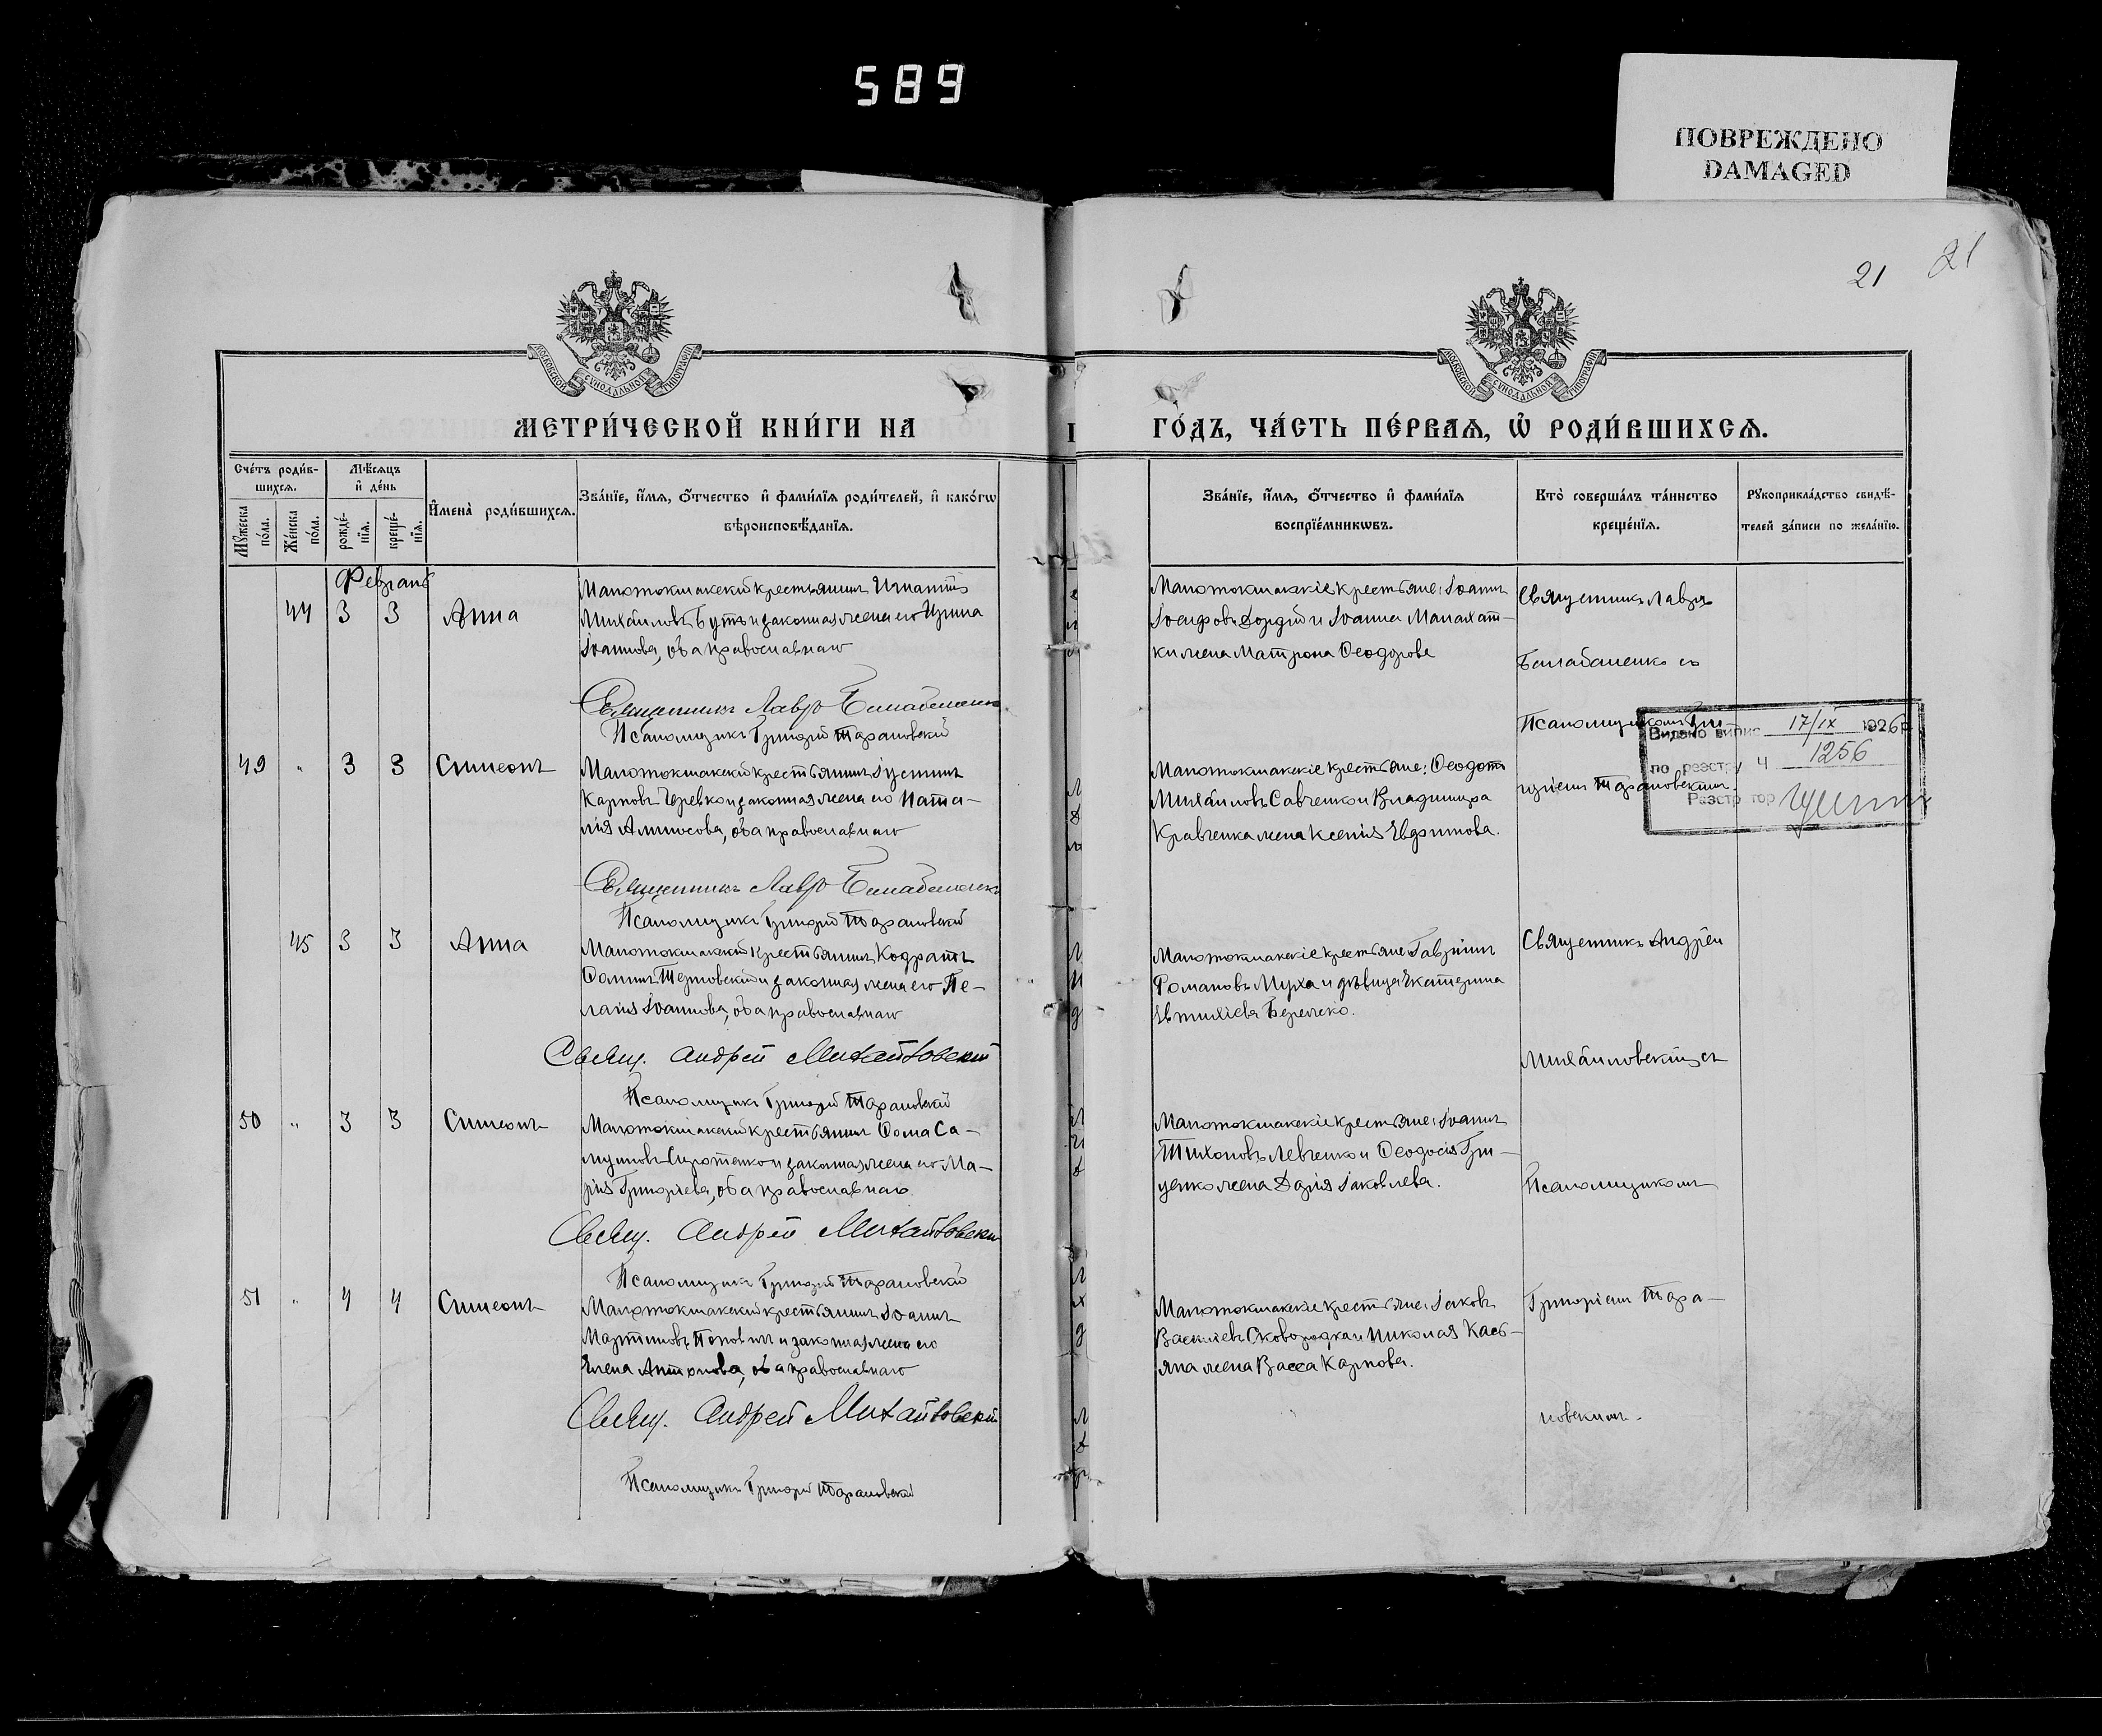 589
ПОВРЕЖДЕНО
DAMAGED
21
21
МОСКОВСКОЙ СУНОДАЛЬНОЙ ТИПОГРАФІИ
МОСКОВСКОЙ СУНОДАЛЬНОЙ ТИПОГРАФІИ
МЕТРИ́ЧЕСКОЙ КНИ́ГИ НА
ГО́ДЪ, ЧА́СТЬ ПЕ́РВАѦ, Ѽ РОДИ́ВШИХСѦ.
Сче́тъ роди́в-
шихсѧ.
Мꙋжеска по́ла.
Же́нска по́ла.
Мѣ́сѧцъ
и҆ де́нь
рожде́-
нїѧ.
креще́-
нїѧ.
И҆мена̀ роди́вшихсѧ.
Зва́нїе, и҆́мѧ, ѻ҆́тчество и҆ фами́лїѧ роди́телей, и҆ како́гѡ
вѣроисповѣ́данїѧ.
Зва́нїе, и҆́мѧ, ѻ҆́тчество и҆ фами́лїѧ
воспрїе́мникѡвъ.
Кто̀ соверша́лъ та́инство
креще́нїѧ.
Рꙋкоприкла́дство свидѣ́-
телей за́писи по жела́нїю.
Февраль
44 3 3 Анна
Малотокмакскій крестьянинъ Игнатій
Михаиловъ Бутъ и законная жена его Ирина
Іоаннова, оба православнаго
Священникъ Лавръ Балабаненко
Псаломщикъ Григорій Тарановскій
Малотокмакскіе крестьяне: Іоаннъ
Іосифовъ Дордій и Іоанна Малахат-
ки жена Матрона Ѳеодорова
Священникъ Лавръ
Балабаненко съ
Псаломщикомъ Гри-
горіемъ Тарановскимъ.
Видано випис 17/IX 1926 р
по реэстру Ч 1256
49 " 3 3 Симеонъ
Малотокмакскій крестьянинъ Іустинъ
Карповъ Черевко и законная жена его Ната-
лія Аммосова, оба православнаго
Священникъ Лавръ Балабаненко
Псаломщикъ Григорій Тарановскій
Малотокмакскіе крестьяне: Ѳеодотъ
Михаиловъ Савченко и Владиміра
Кравченка жена Ксенія Евфимова.
45 3 3 Анна
Малотокмакскій крестьянинъ Кодратъ
Ѳоминъ Терновскій и законная жена его Пе-
лагія Іоаннова, оба православнаго
Свящ. Андрей Михайловскій
Псаломщикъ Григорій Тарановскій
Малотокмакскіе крестьяне: Гавріилъ
Романовъ Муха и дѣвица Екатерина
Евтихіева Бережко.
Священникъ Андрей
Михаиловскій съ
Псаломщикомъ
Григоріемъ Тара-
новскимъ.
50 " 3 3 Симеонъ
Малотокмакскій крестьянинъ Ѳома Са-
муиловъ Сиротенко и законная жена его Ма-
рія Григоріева, оба православнаго.
Свящ. Андрей Михайловскій
Псаломщикъ Григорій Тарановскій
Малотокмакскіе крестьяне: Іоаннъ
Тихоновъ Левченко и Ѳеодосія Гри-
ценко жена Дарія Іаковлева.
51 " 4 4 Симеонъ
Малотокмакскій крестьянинъ Іоаннъ
Мартиновъ Поповичъ и законная жена его
Елена Антонова, оба православнаго
Свящ. Андрей Михайловскій
Псаломщикъ Григорій Тарановскій
Малотокмакскіе крестьяне: Іаковъ
Василіевъ Сковородка и Николая Касъ-
яна жена Васса Карпова.